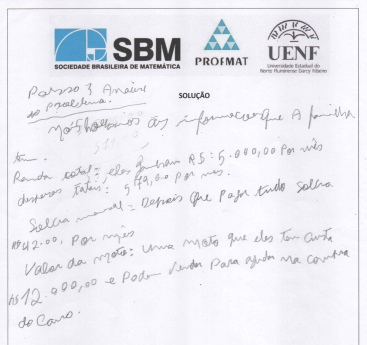 SBM
SOCIEDADE BRASILEIRA DE MATEMÁTICA
PROFMAT
UENF
Universidade Estadual do
Norte Fluminense Darcy Ribeiro
SOLUÇÃO
Passo 3 Analise
do problema.
nós as informações que A familia
tem.
Renda total: eles ganham R$: 5.000,00 Por mês
despesas totais: Por mês.
Sobra mensal = Depois que Pagar tudo sobra
R$42.00, Por mês
Valor da moto: Uma moto que eles tem custa
R$12.000,00 e Podem vender Para ajudar na compra
do Carro.